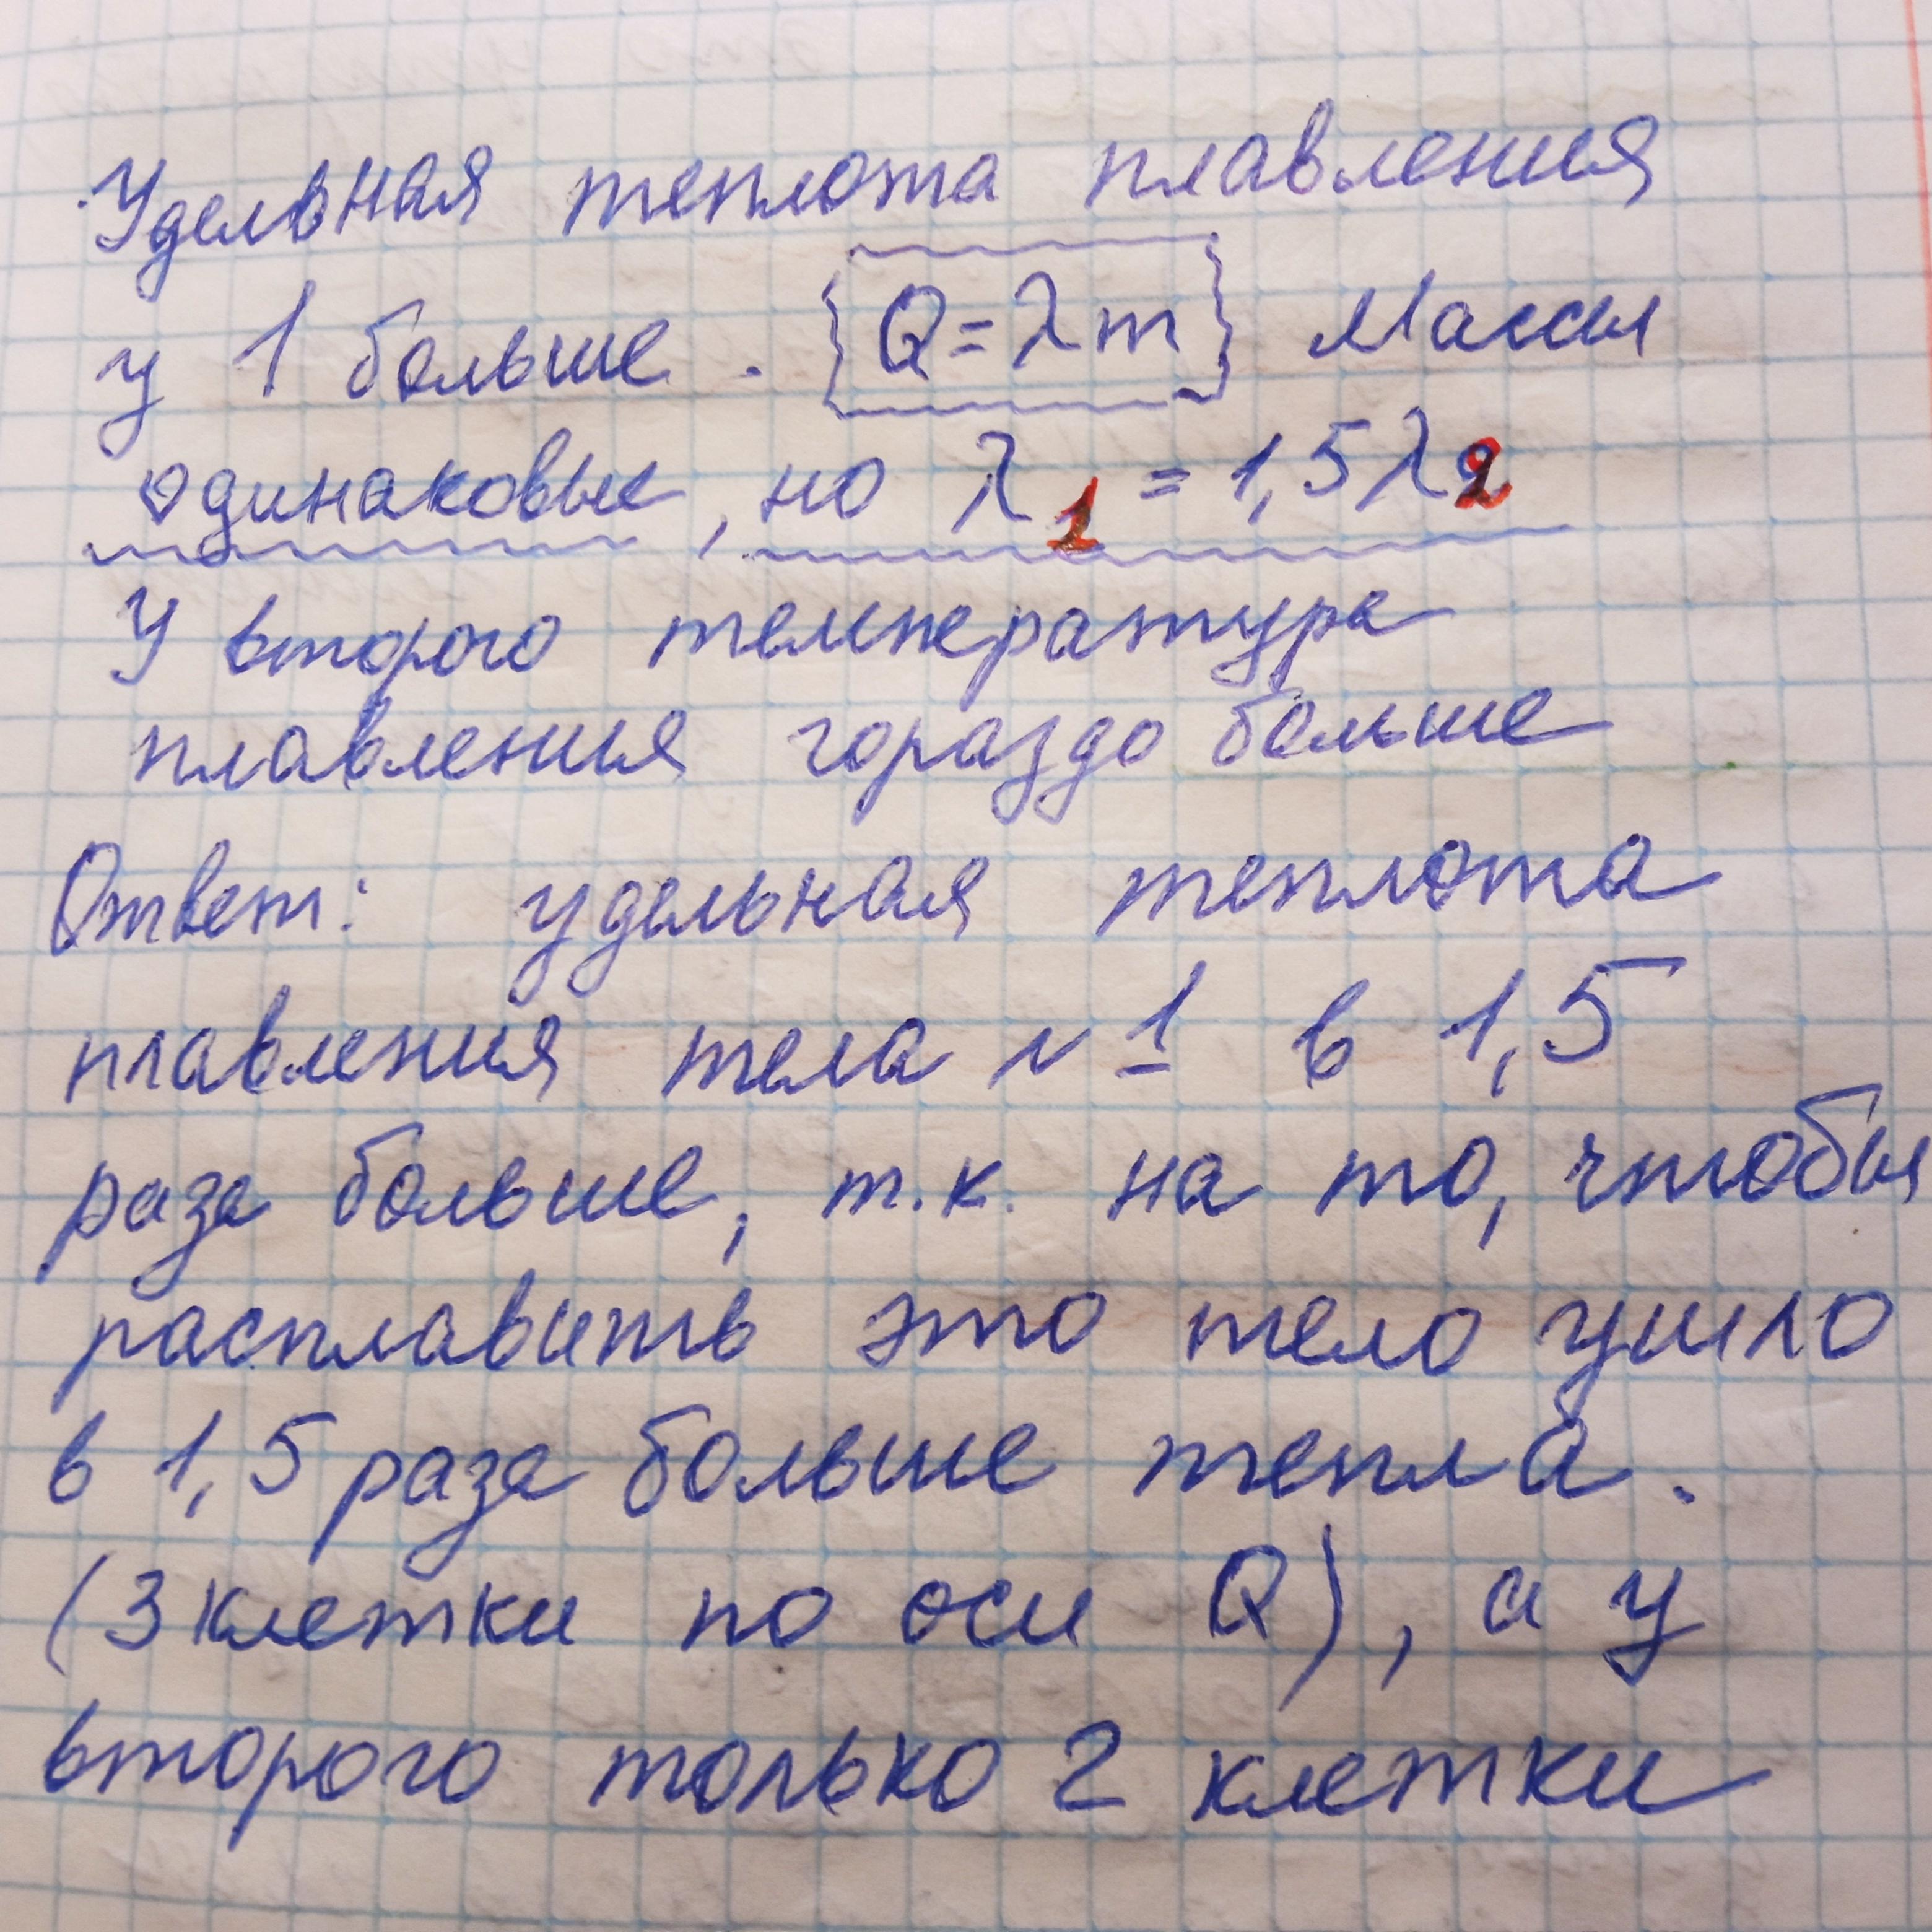 Удельная теплота плавления
у 1 больше. {Q = λm} Массы
одинаковые, но λ1 = 1,5λ2
У второго температура
плавления гораздо больше
Ответ: удельная теплота
плавления тела №1 в 1,5
раза больше, т.к. на то, чтобы
расплавить это тело ушло
в 1,5 раза больше тепла.
(3 клетки по оси Q), а у
второго только 2 клетки